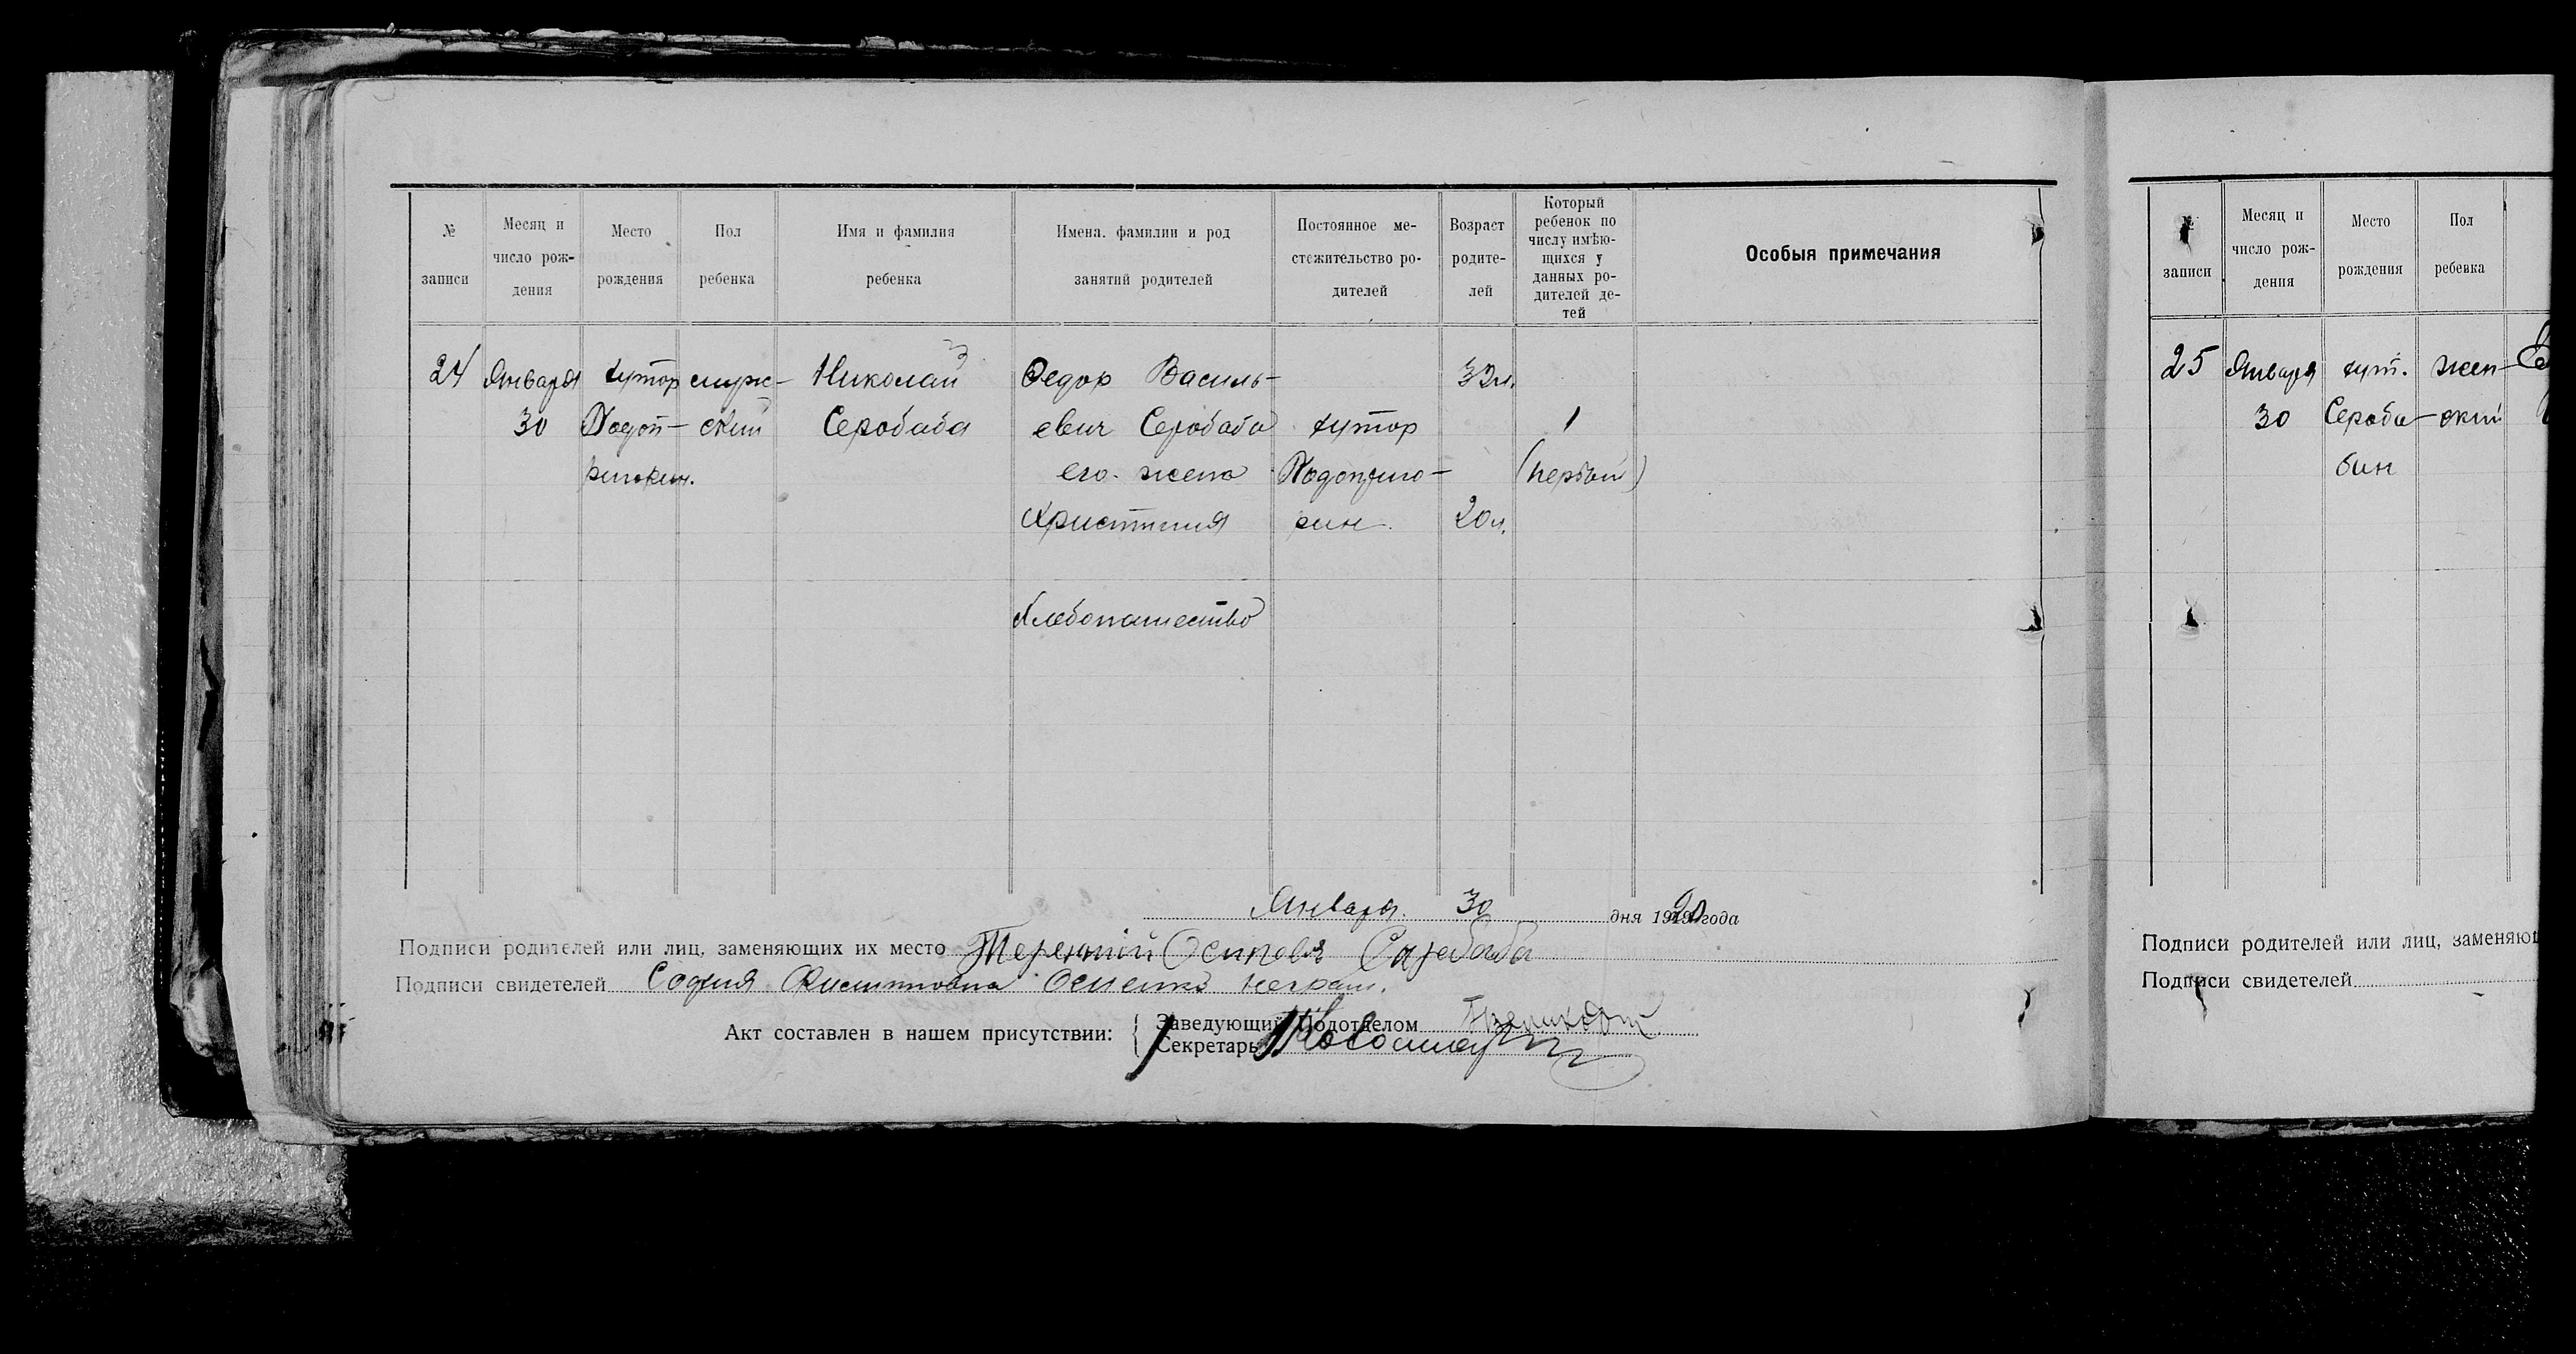 № записи
Месяц и число рождения
Место рождения
Пол ребенка
Имя и фамилия ребенка
Имена, фамилии и род занятий родителей
Постоянное местожительство родителей
Возраст родителей
Который ребенок по числу имѣющихся у данных родителей детей
Особыя примечания
24 Января хутор мужс- Николай Федор Василь- 32 л.
30 ский Серобаба евич Серобаба хутор 1
его жена (первый)
Христиния 20 л.
Хлебопашество
Января 30 дня 1920 года
Подписи родителей или лиц, заменяющих их место Терентий Осиповъ Саребаба
Подписи свидетелей София неграм.
Акт составлен в нашем присутствии:
Заведующий Подотделом
Секретарь
№ записи
Месяц и число рождения
Место рождения
Пол ребенка
25 Января хут. жен-
30 Сероба- ский
бин
Подписи родителей или лиц, заменяющ
Подписи свидетелей